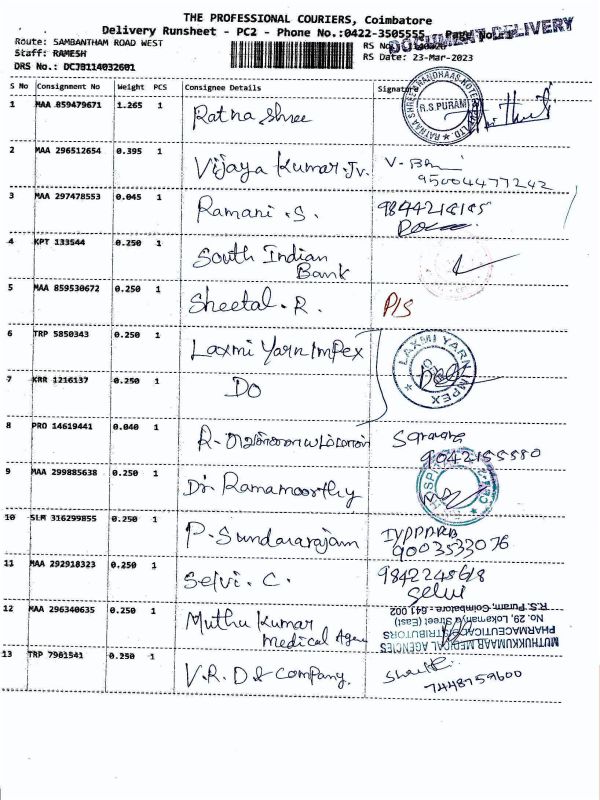 THE PROFESSIONAL COURIERS, Coimbatore
Delivery Runsheet - PC2 - Phone No.:0422-3505555 Page No.
DOCUMENT DELIVERY
Route: SAMBANTHAM ROAD WEST
RS No
Staff: RAMESH
RS Date: 23-Mar-2023
DRS No.: DCJB114032601
S No Consignment No Weight PCS Consignee Details Signature
1 MAA 859479671 1.265 1 Ratna Shree
R.S.PURAM
2 MAA 296512654 0.395 1 Vijaya Kumar.Jv.
95004477242
3 MAA 297478553 0.045 1 Ramani.S.
4 KPT 133544 0.250 1 South Indian
Bank
5 MAA 859530672 0.250 1 Sheetal.R. P/S
6 TRP 5850343 0.250 1 Laxmi Yarn Impex
LAXMI YARN IMPEX
7 KRR 1216137 0.250 1 DO
8 PRO 14619441 0.040 1
9 MAA 299885638 0.250 1 Dr. Ramamoorthy
10 SLM 316299855 0.250 1 P. Sundararajam
9003533076
11 MAA 292918323 0.250 1 Selvi.C.
Selvi
12 MAA 296340635 0.250 1 Muthu Kumar
Medical Agen
MUTHUKKUMAAR MEDICAL AGENCIES
PHARMACEUTICAL DISTRIBUTORS
No. 29, Lokamanya Street (East)
R.S. Puram, Coimbatore - 641 002
13 TRP 7961541 0.250 1 V.R.D & Company.
7448759600